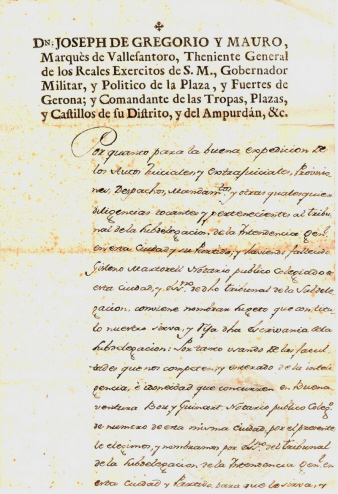 ✠
Dⁿ: JOSEPH DE GREGORIO Y MAURO,
Marquès de Vallesantoro, Theniente General
de los Reales Exercitos de S. M., Gobernador
Militar, y Politico de la Plaza, y Fuertes de
Gerona; y Comandante de las Tropas, Plazas,
y Castillos de su Distrito, y del Ampurdán, &c.
Por quanto para la buena expedicion de
los Autos Judiciales y extrajudiciales, Provisio
nes, Despachos, Mandam.tos y otras qualesquiera
diligencias tocantes y pertenecientes al tribu
nal de la Subdelegacion de la Intendencia Gen.
en esta Ciudad y su Partido, y haviendo fallecido
Martorell Notario publico Colegiado de
esta ciudad, y Ess.no de dho tribunal de la Subdele
gacion, conviene nombrar sugeto que con titu
lo nuestro sirva, y rija dha escrivania de la
Subdelegacion: Por tanto usando de las facul
tades que nos competen, y enterado de la inteli
gencia, è idoneidad que concurren en Buena
ventura Bou y Guinart Notario publico Coleg.o
de numero de esta misma Ciudad, por el presente
le elegimos, y nombramos por Ess.no del tribunal
de la Subdelegacion de la Intendencia Gen.
en esta Ciudad y Partido para que lo sirva, y